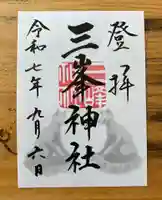 登拝
三峯神社
令和七年九月六日